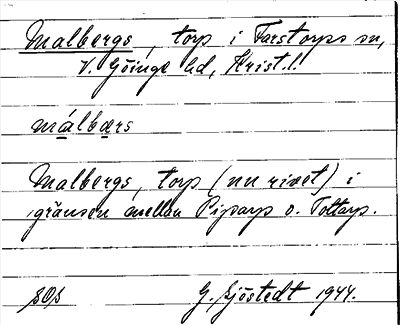 Malbergs, torp i Farstorps sn,
V. Göinge hd, Krist.l.
málbærs
Malbergs, torp (nu rivet) i
gränsen mellan Piparp o. Tottarp.
sOs G. Sjöstedt 1944.